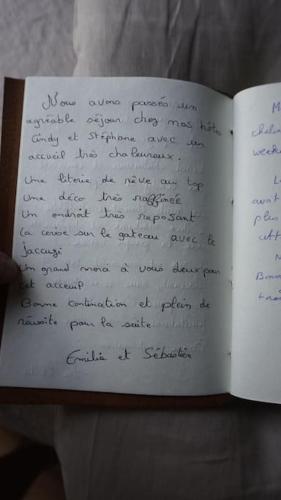 Nous avons passés un
agréable séjour chez nos hôtes
Cindy et Stéphane avec un
accueil très chaleureux.
Une literie de rêve au top
Une déco très raffinée
Un endroit très reposant
la cerise sur le gateau avec le
jaccuzi
Un grand merci à vous deux pour
cet acceuil
Bonne contination et plein de
réussite pour la suite
Emilie et Sébastien